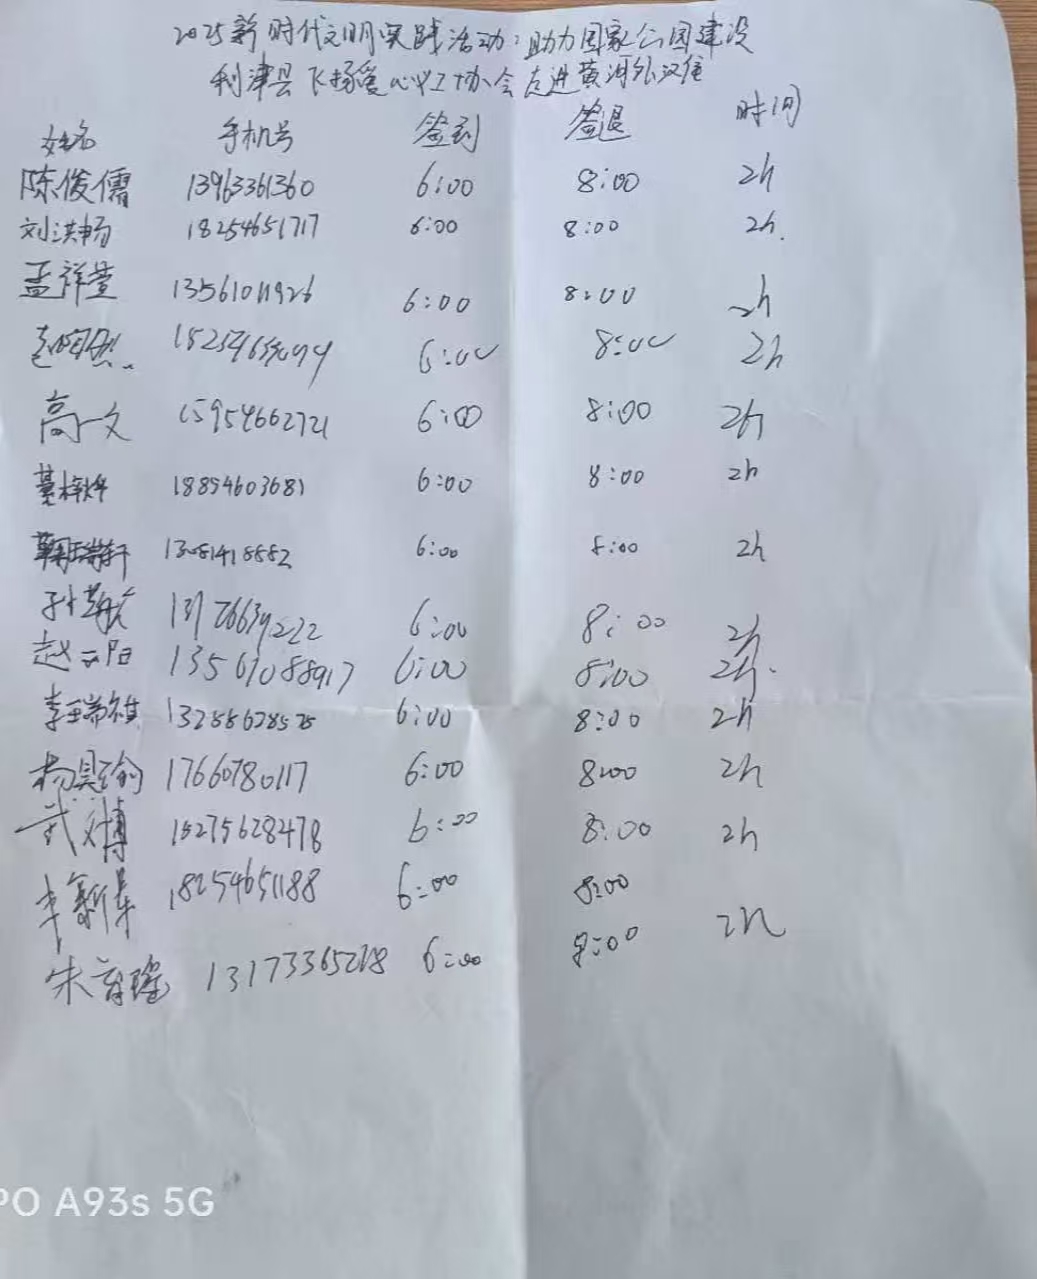 2025新时代文明实践活动：助力国家公园建设
利津县飞扬爱心义工协会走进黄河外滩
姓名 手机号 签到 签退 时间
陈俊儒 13963361360 6:00 8:00 2h
刘洪畅 18254651717 6:00 8:00 2h.
孟祥萱 13561011926 6:00 8:00 2h
6:00 8:00 2h
高一文 15954662721 6:00 8:00 2h
18854603681 6:00 8:00 2h
鞠瑞轩 13081418882 6:00 8:00 2h
孙 6:00 8:00 2h
赵云阳 13561088917 6:00 8:00 2h.
李瑞祺 13288628575 6:00 8:00 2h
杨昊瑜 17660780117 6:00 8:00 2h
武文博 15275628478 6:00 8:00 2h
18254651188 6:00 8:00
朱 13173365218 6:00 8:00 2h
PO A93s 5G